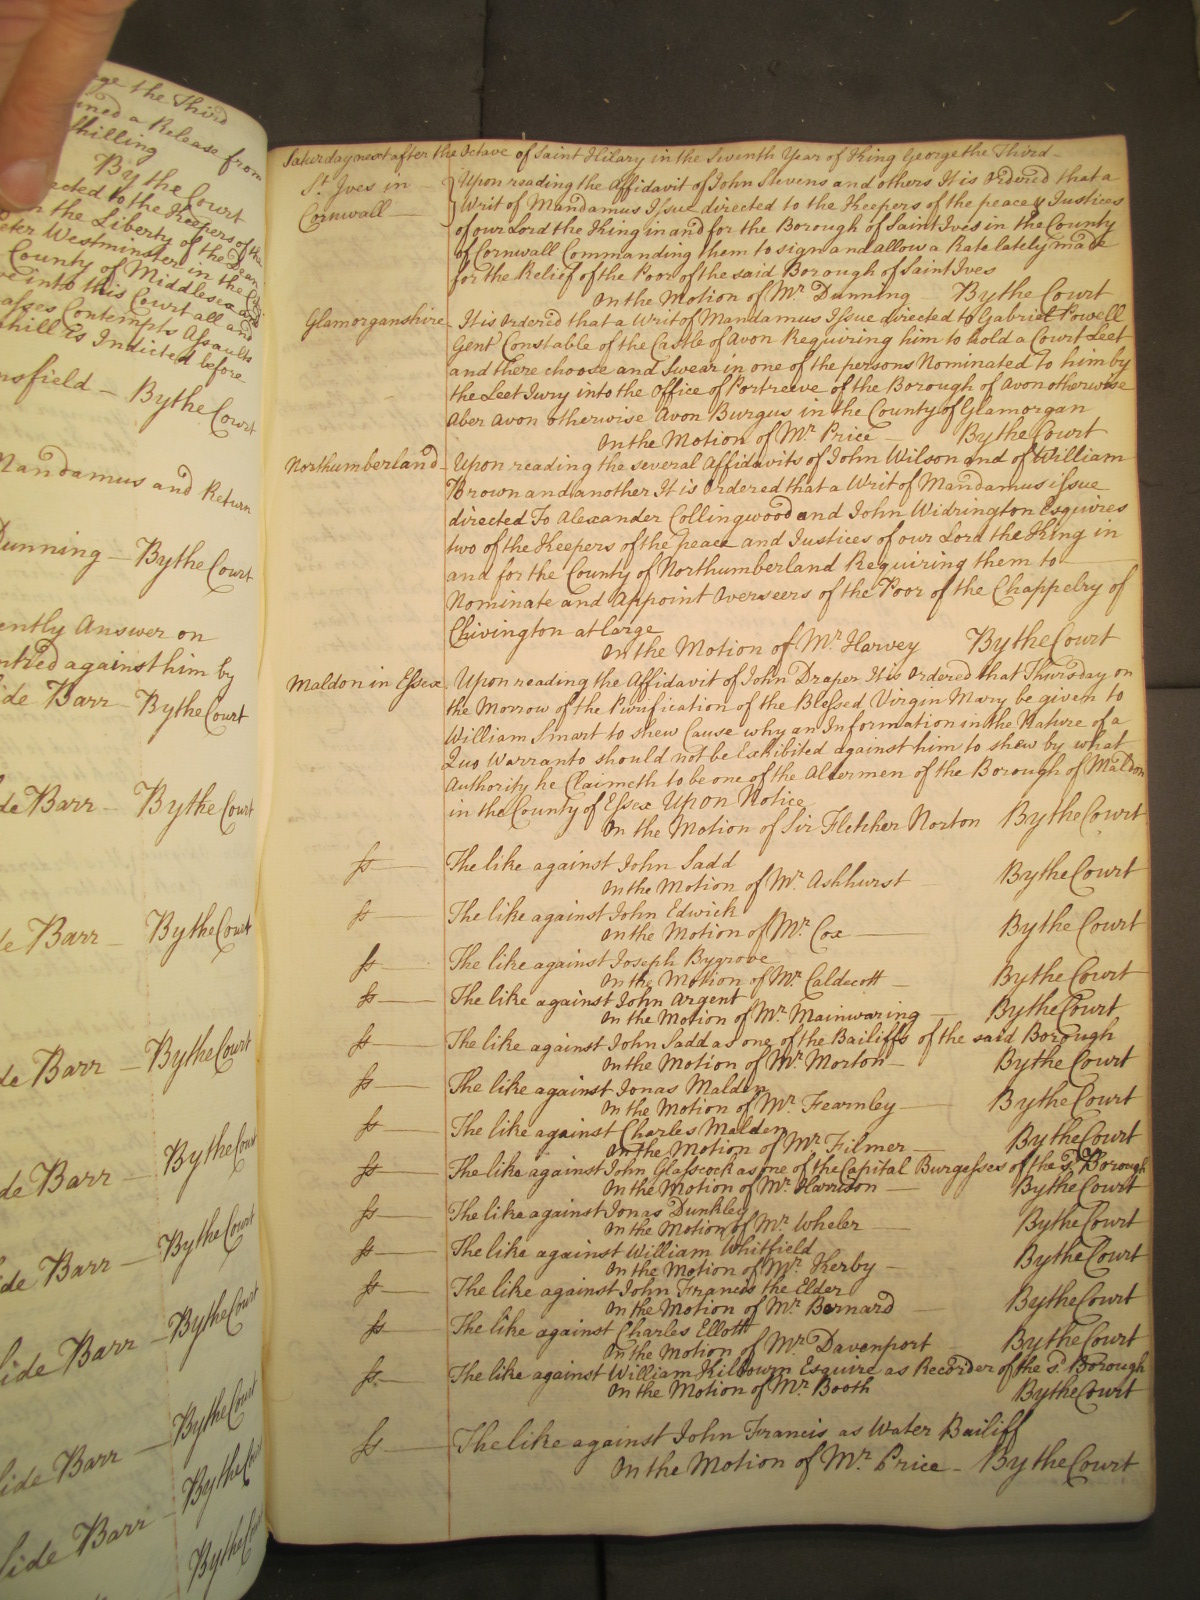 ge the Third
ined a Release from
shilling
By the Court
ected to the Keepers of the
n the Liberty of the Dean
eter Westminster in the
County of Middlesex and
ve into this Court all and
asses Contempts Assaults
hill is Indicted before
nsfield – By the Court
Mandamus and Return
Dunning – By the Court
ently Answer on
ntred against him by
ide Barr – By the Court
de Barr – By the Court
e Barr – By the Court
de Barr – By the Court
de Barr – By the Court
ide Barr – By the Court
lide Barr – By the Court
lide Barr – By the Court
By the Co
Side Barr – By the Cou
Saturday next after the Octave of Saint Hilary in the Seventh Year of King George the Third –
St. Ives in Cornwall – Upon reading the Affidavit of John Stevens and others It is Ordered that a
Writ of Mandamus Issue directed to the Keepers of the peace & Justices
of our Lord the King in and for the Borough of Saint Ives in the County
of Cornwall Commanding them to sign and allow a Rate lately made
for the Relief of the Poor of the said Borough of Saint Ives
On the Motion of Mr. Dunning – By the Court
Glamorganshire It is Ordered that a Writ of Mandamus Issue directed to Gabriel Powell
Gent Constable of the Castle of Avon Requiring him to hold a Court Leet
and there choose and Swear in one of the persons Nominated to him by
the Leet Jury into the Office of Portreeve of the Borough of Avon otherwise
Aber Avon otherwise Avon Burgus in the County of Glamorgan
On the Motion of Mr. Price – By the Court
Northumberland – Upon reading the several Affidavits of John Wilson and of William
Brown and another It is Ordered that a Writ of Mandamus issue
directed To Alexander Collingwood and John Widrington Esquires
two of the Keepers of the peace and Justices of our Lord the King in
and for the County of Northumberland Requiring them to
Nominate and Appoint Overseers of the Poor of the Chappelry of
Chivington at large
On the Motion of Mr. Harvey By the Court
Maldon in Essex Upon reading the Affidavit of John Draper It is Ordered that Thursday on
the Morrow of the Purification of the Blessed Virgin Mary be given to
William Smart to shew Cause why an Information in the Nature of a
Quo Warranto should not be Exhibited against him to shew by what
Authority he Claimeth to be one of the Aldermen of the Borough of Maldon
in the County of Essex Upon Notice
On the Motion of Sir Fletcher Norton By the Court
ss – The like against John Sadd
On the Motion of Mr. Ashhurst – By the Court
ss – The like against John Edwick
On the Motion of Mr. Cox – By the Court
ss – The like against Joseph Bygrove
On the Motion of Mr. Caldecott – By the Court
ss – The like against John Argent
On the Motion of Mr. Mainwaring – By the Court
ss – The like against John Sadd as one of the Bailiffs of the said Borough
On the Motion of Mr. Morton – By the Court
ss – The like against Jonas Malden
On the Motion of Mr. Fearnley – By the Court
ss – The like against Charles Malden
On the Motion of Mr. Filmer – By the Court
ss – The like against John Glasscock as one of the Capital Burgesses of the sd. Borough
On the Motion of Mr. Harrison – By the Court
ss – The like against Jonas Dunkley
On the Motion of Mr. Wheler – By the Court
ss – The like against William Whitfield
On the Motion of Mr. Kerby – By the Court
ss – The like against John Francis the Elder
On the Motion of Mr. Bernard – By the Court
ss – The like against Charles Ellott
On the Motion of Mr. Davenport – By the Court
ss – The like against William Kildowin Esquire as Recorder of the sd. Borough
On the Motion of Mr. Booth By the Court
ss – The like against John Francis as Water Bailiff
On the Motion of Mr. Price – By the Court